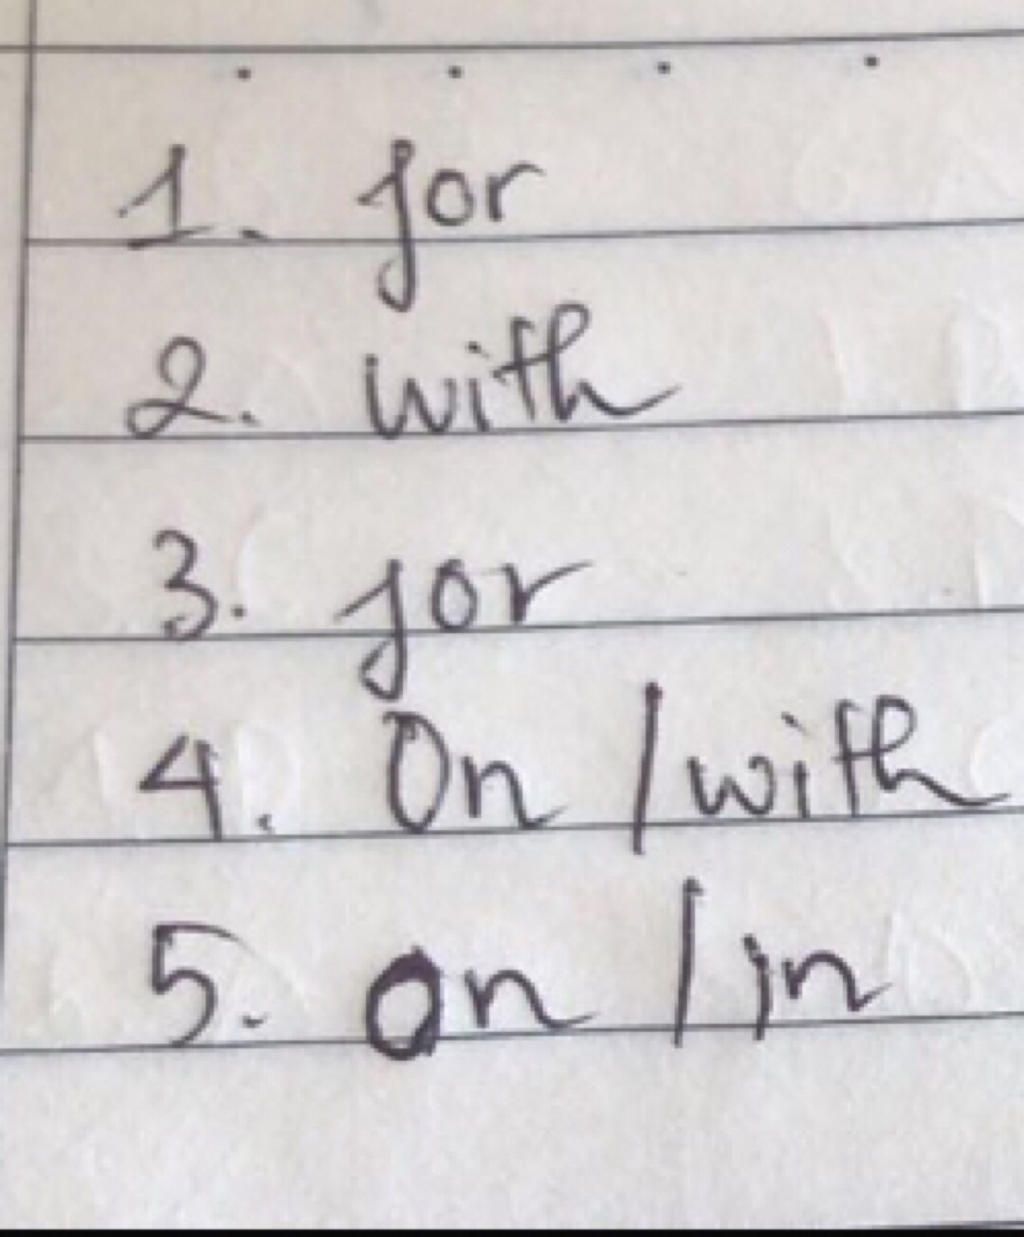 1. for
2. with
3. for
4. On / with
5. on / in